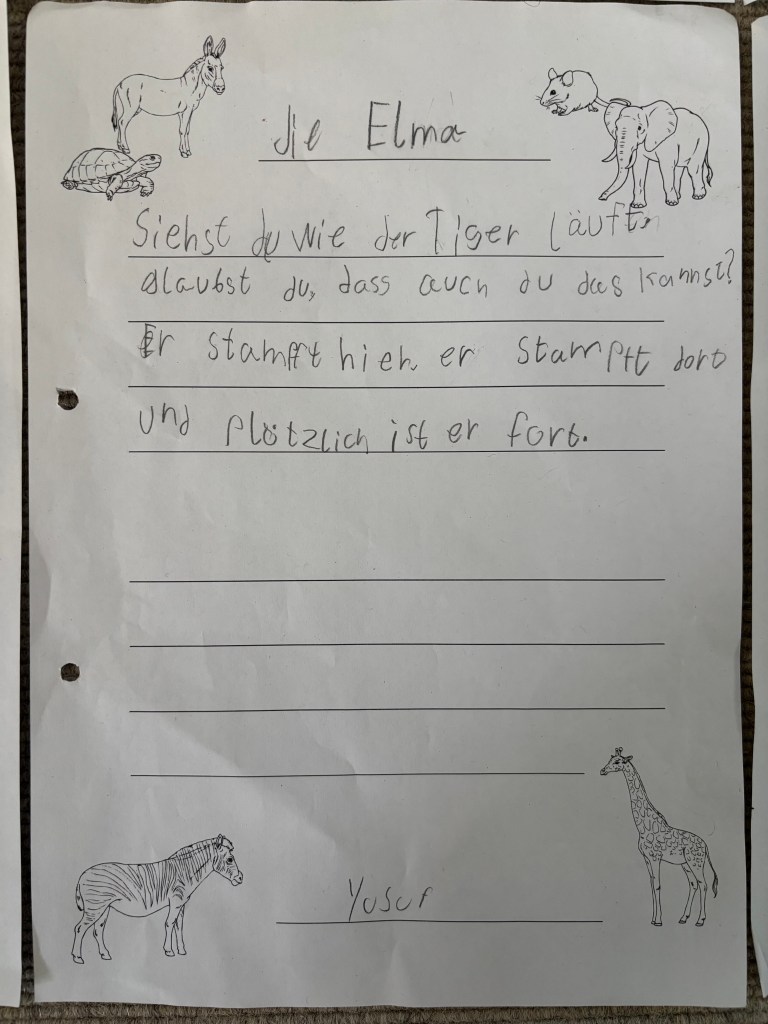 die Elma
Siehst du wie der Tiger läuft,
Glaubst du, dass auch du das kannst?
Er stampft hier, er stampftt dort
und plötzlich ist er fort.
Yusuf